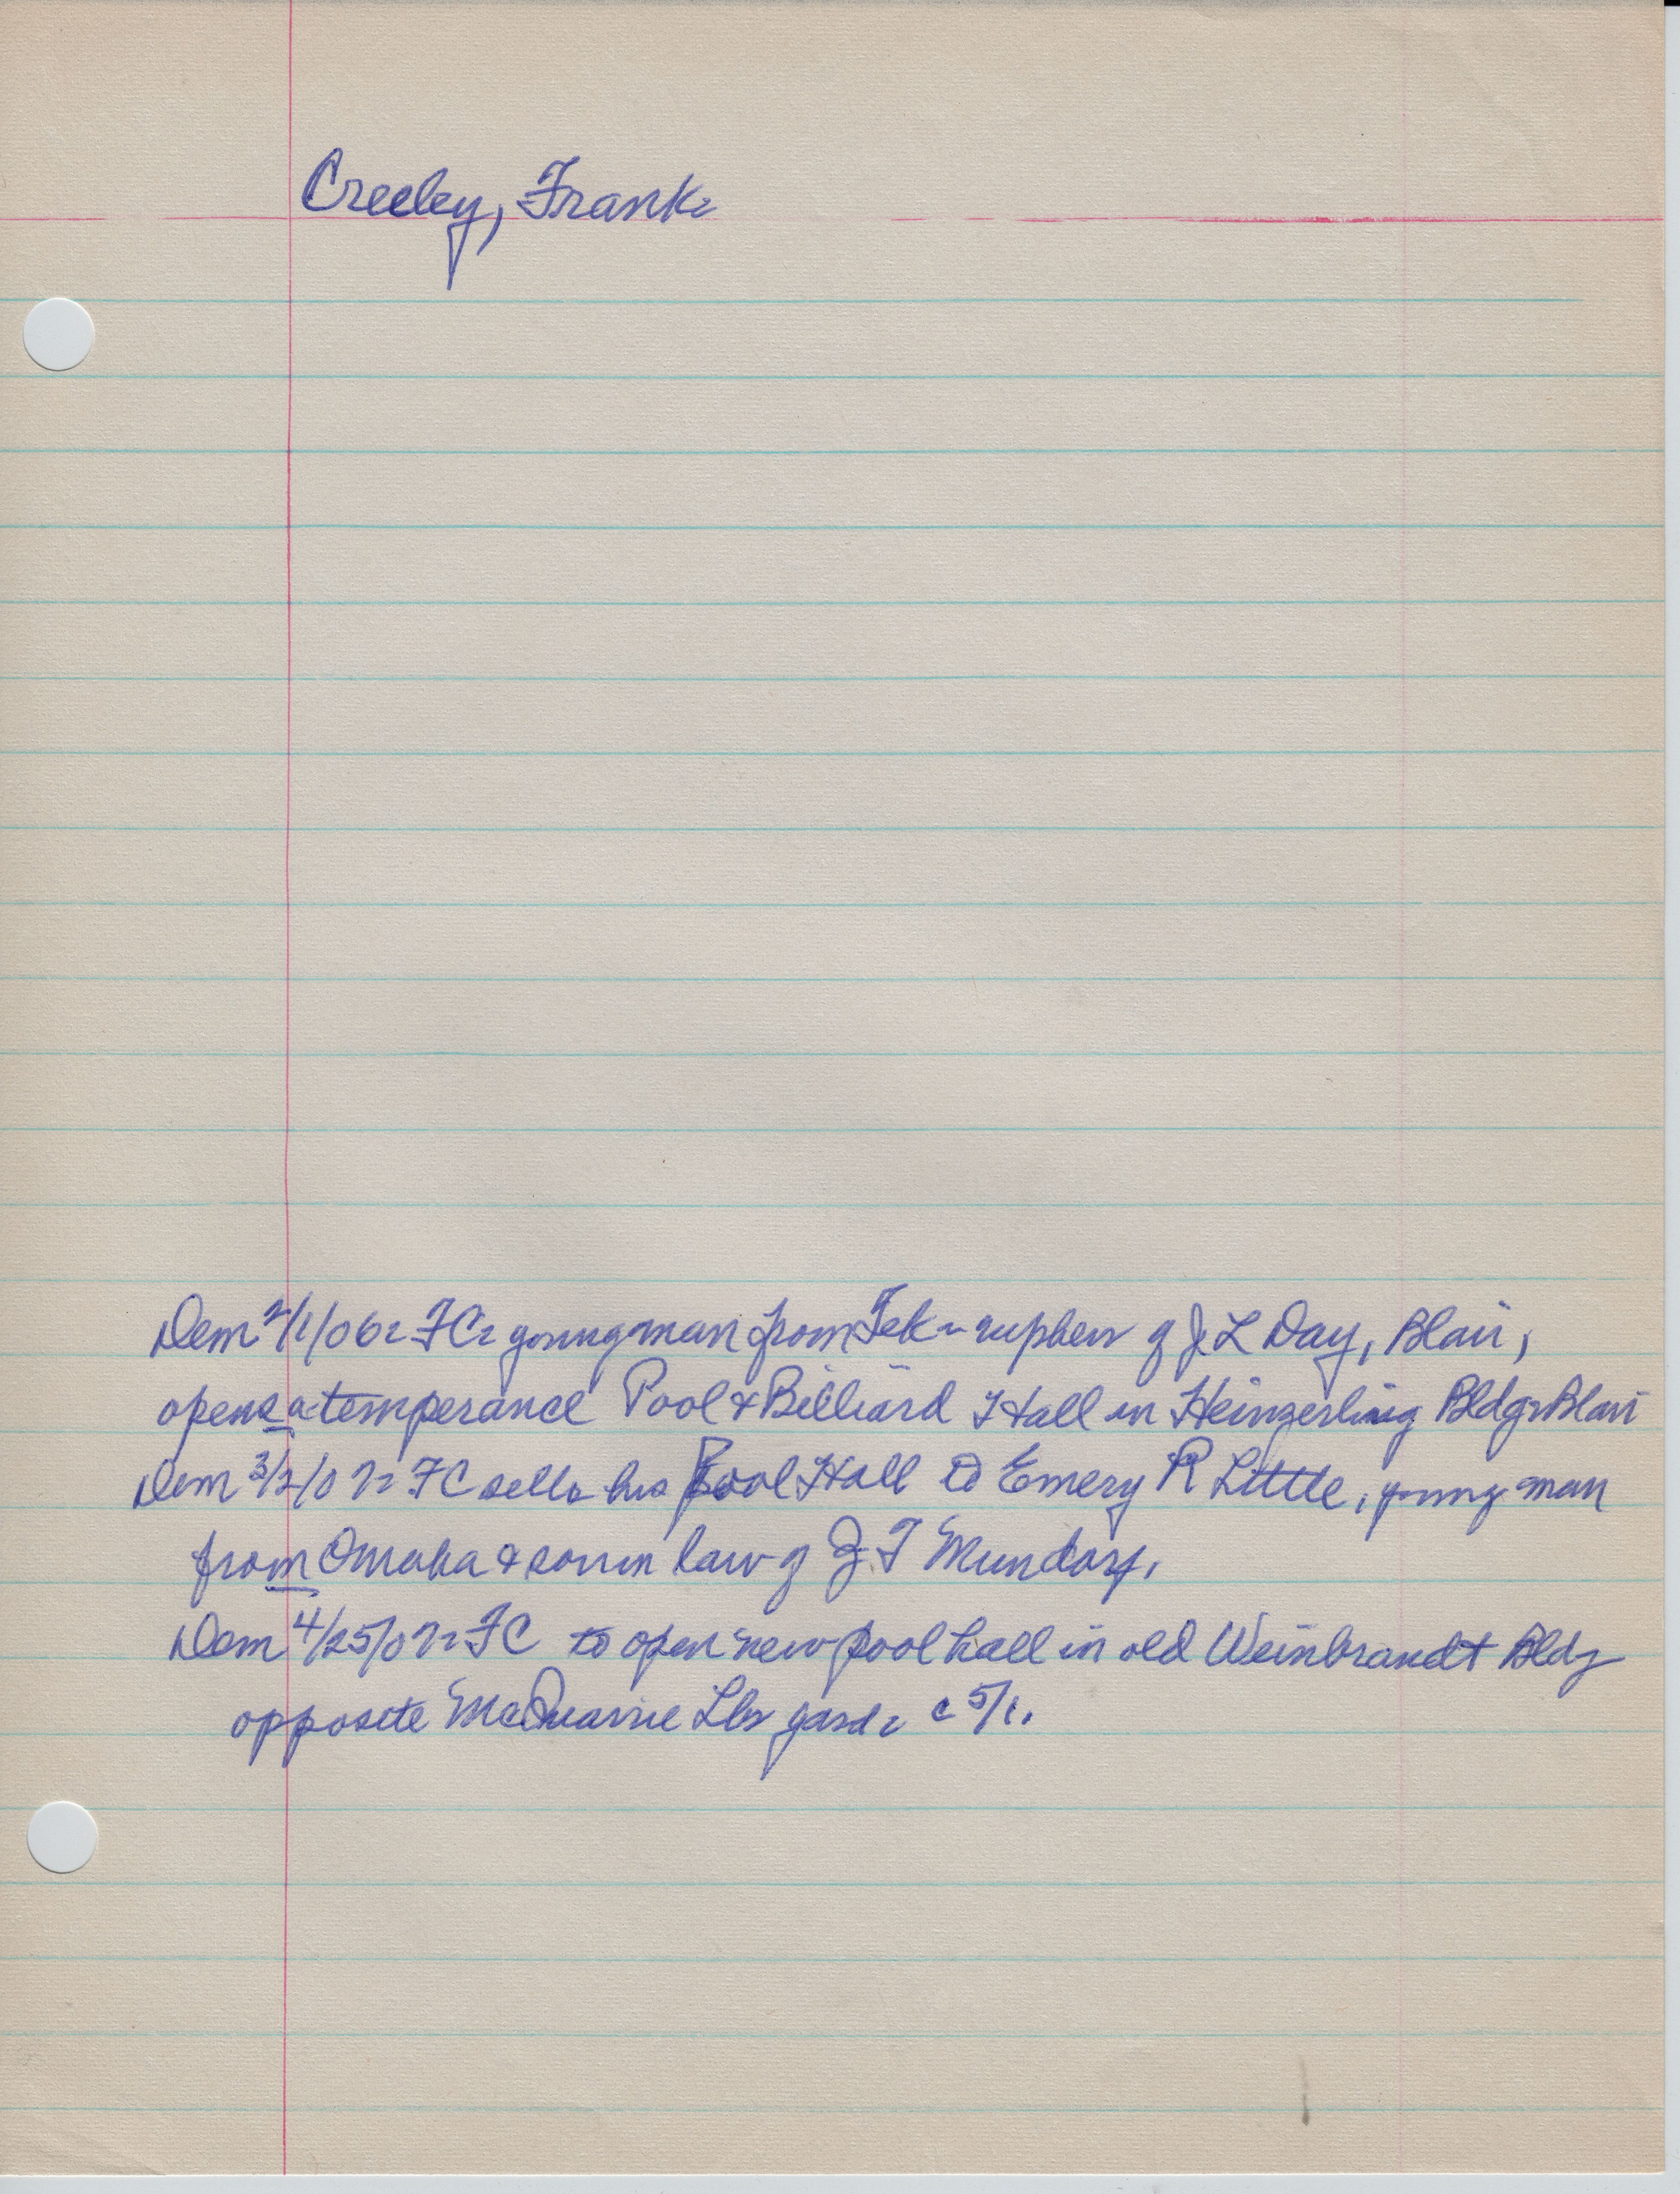 Creeley, Frank
Dem 2/1/06 FC young man from Tek - nephew of J L Day, Blair,
opens a temperance Pool & Billiard Hall in Heinzerling Bldg Blair
Dem 3/2/07 FC sells his Pool Hall to Emery R Little, young man
from Omaha & son in law of J T Mundorf.
Dem 4/25/07 FC to open new pool hall in old Weinbrandt Bldg
opposite McQuarrie Lbr yard c 5/1.